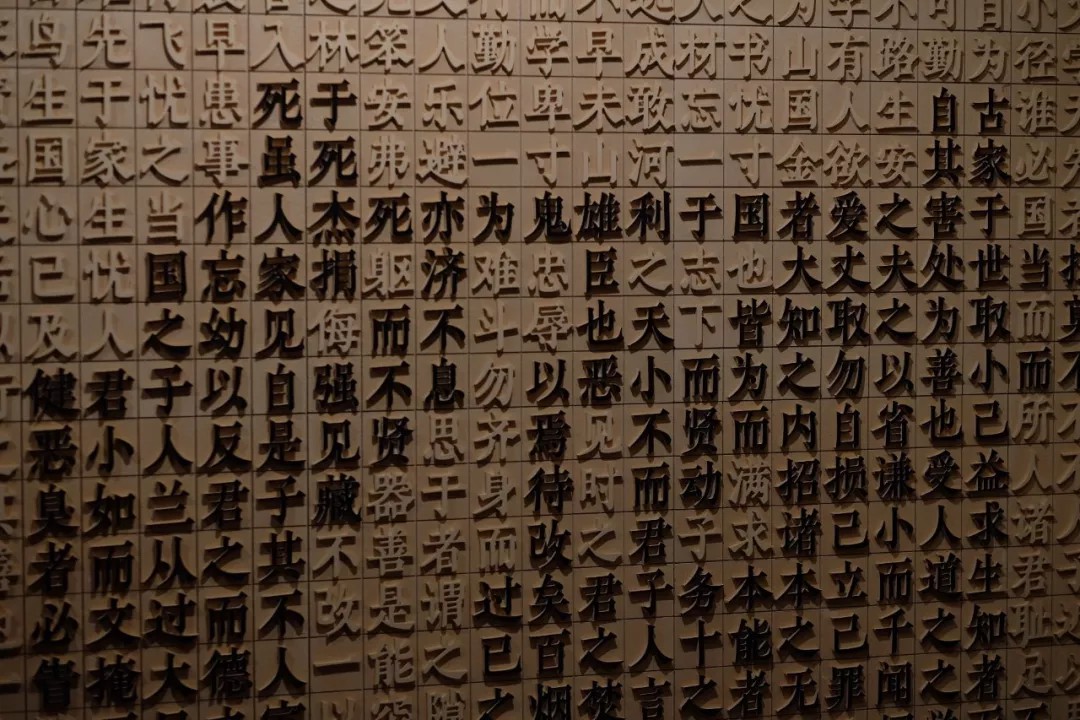 鸟先飞早入林笨人勤学早成材书山有路勤为径学
生于忧患死于安乐位卑未敢忘忧国人生自古谁
国家之事虽死弗避一寸山河一寸金欲安其家必先
心生当作人杰死亦为鬼雄利于国者爱之害于国者
已忧国忘家捐躯济难忠臣之志也大丈夫处世当
及人之幼见侮而不斗辱也天下皆知取之为取而莫
健君子以自强不息勿以恶小而为之勿以善小而不
恶小人反是见贤思齐焉见不贤而内自省也己所不
臭如兰君子藏器于身待时而动满招损谦受益人不
者而从之其不善者而改之君子求诸己小人求诸人
必文过而不改是谓过矣君子务本本立而道生知耻
眚掩大德人一能之己百之人十能之己千之知足
言之者无罪闻之者足